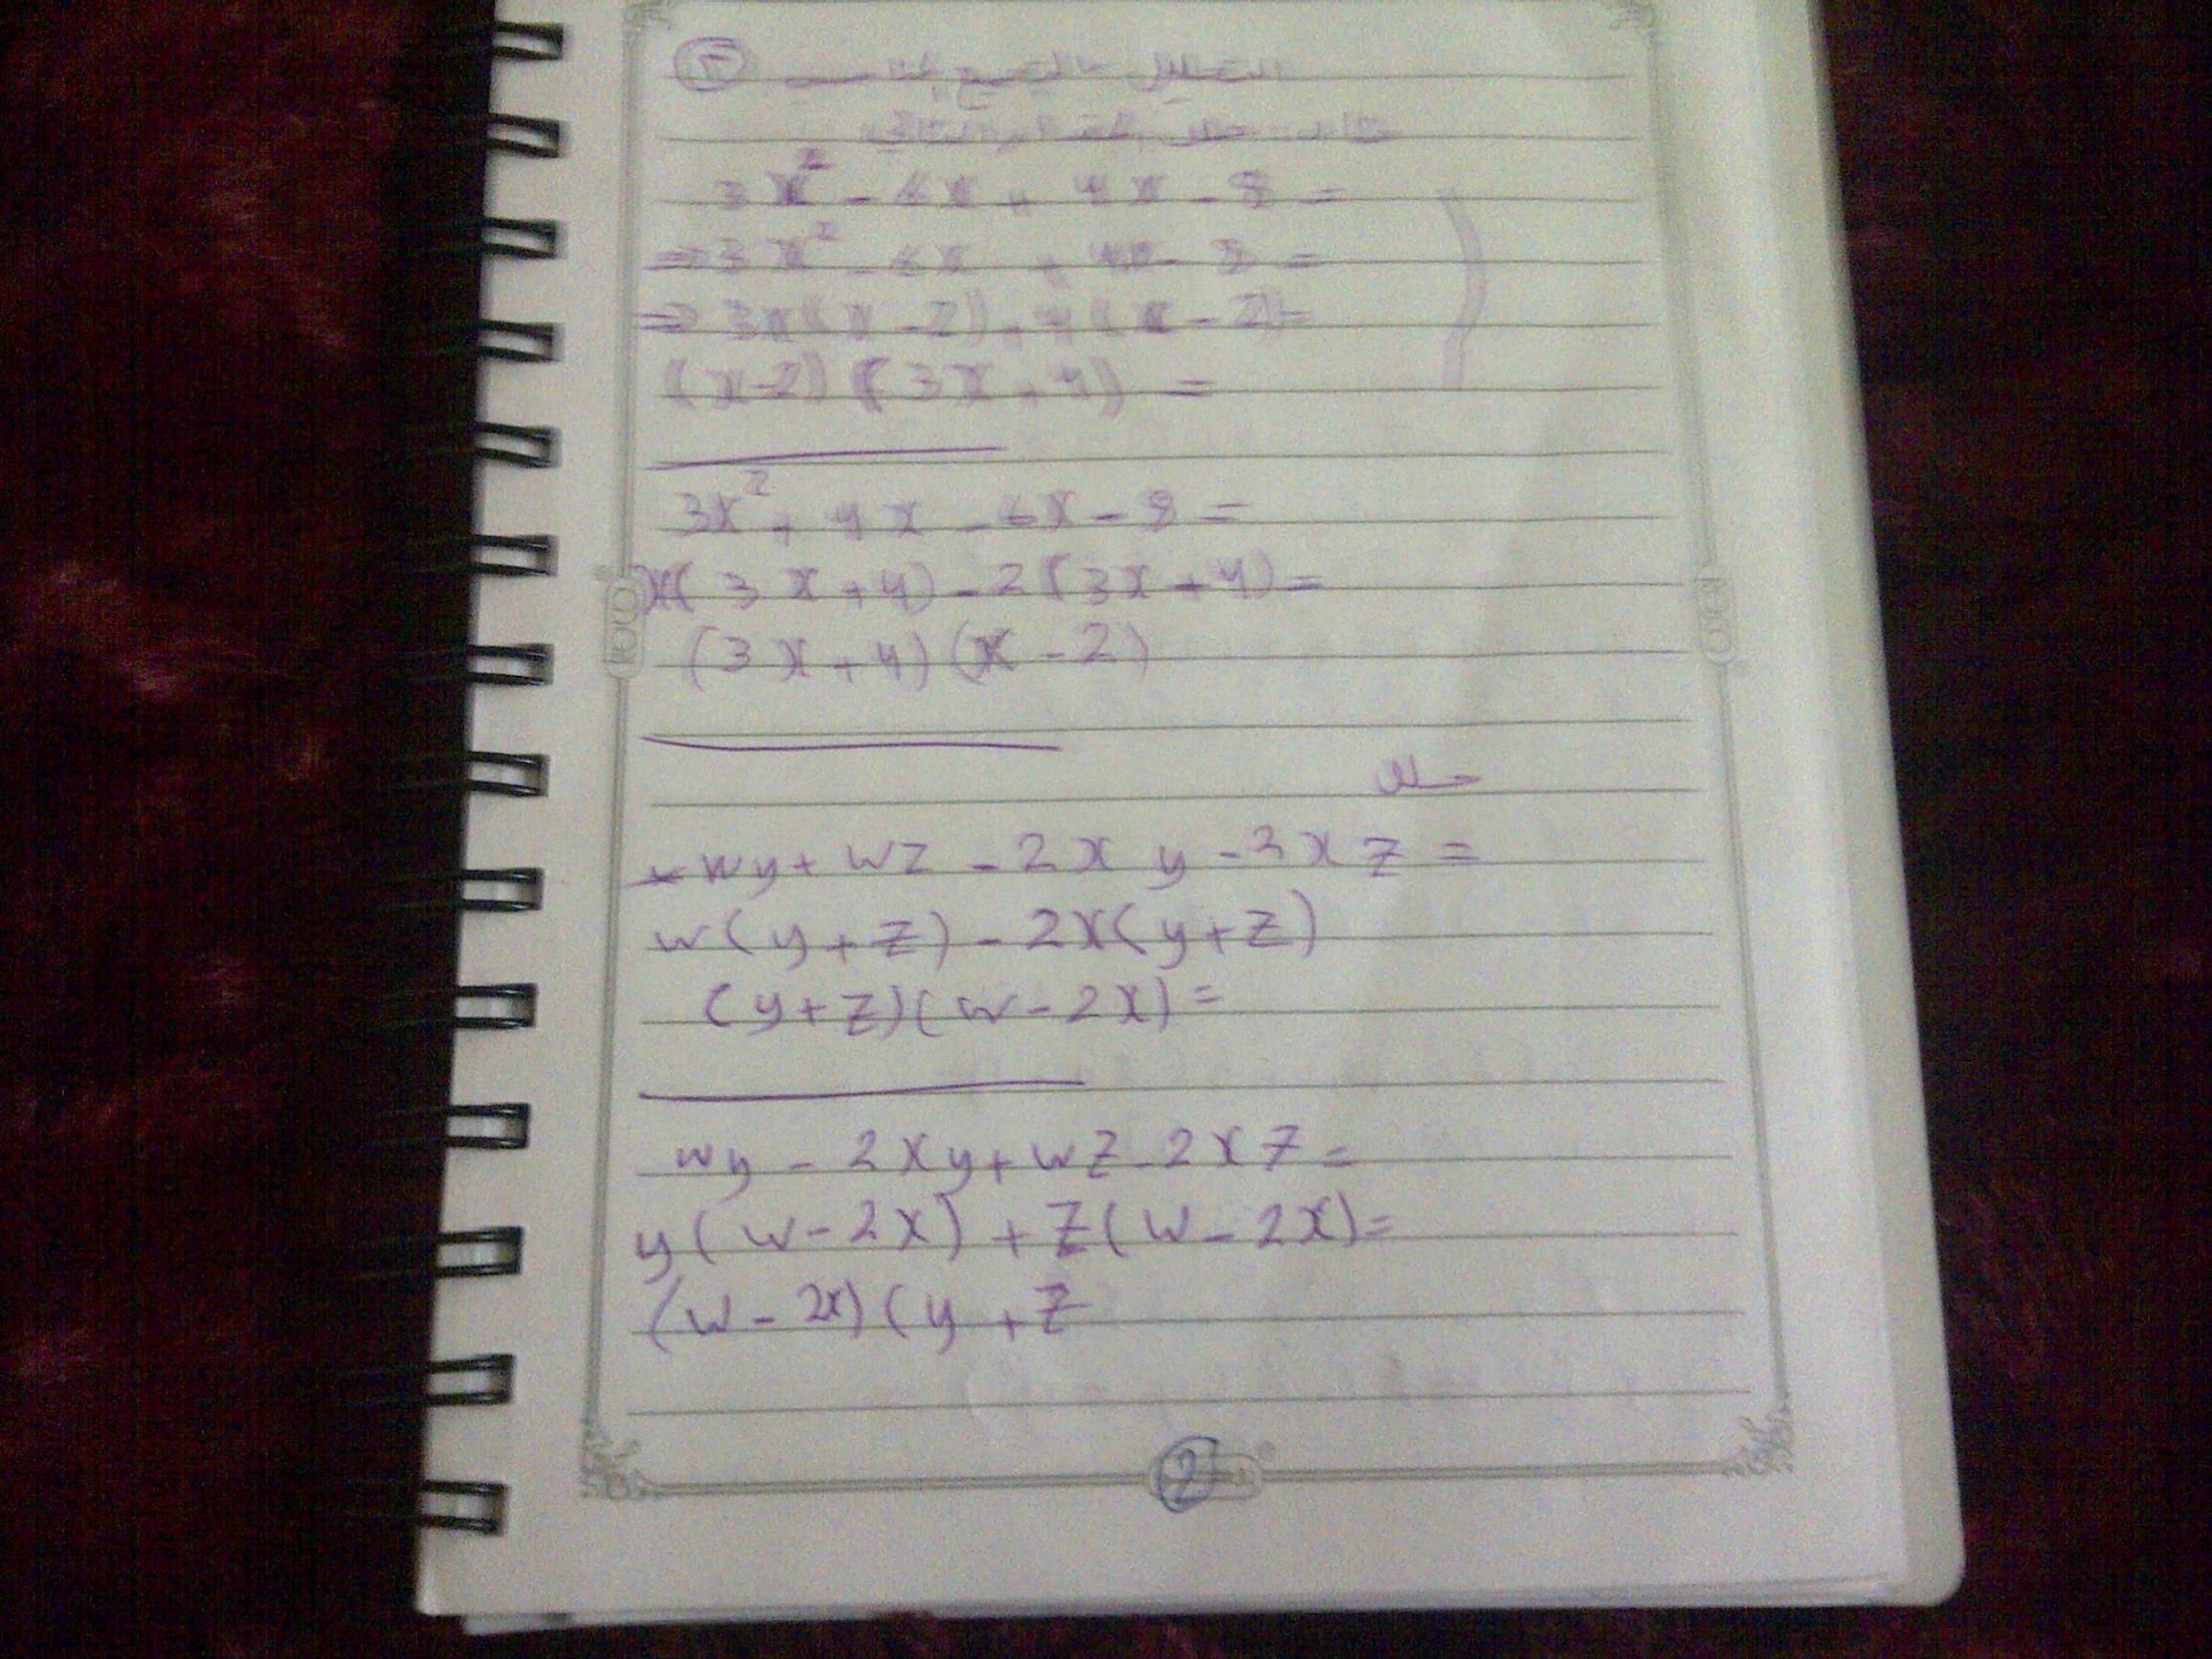 التحليل بالتجميع
3x² - 6x + 4x - 8 =
⇒ 3x² - 6x + 4x - 8 =
⇒ 3x(x - 2) + 4(x - 2) =
(x-2) (3x + 4) =
3x² + 4x - 6x - 8 =
x(3x + 4) - 2(3x + 4) =
(3x + 4)(x - 2)
wy + wz - 2xy - 3xz =
w(y + z) - 2x(y + z)
(y + z)(w - 2x) =
wy - 2xy + wz - 2xz =
y(w - 2x) + z(w - 2x) =
(w - 2x)(y + z
2